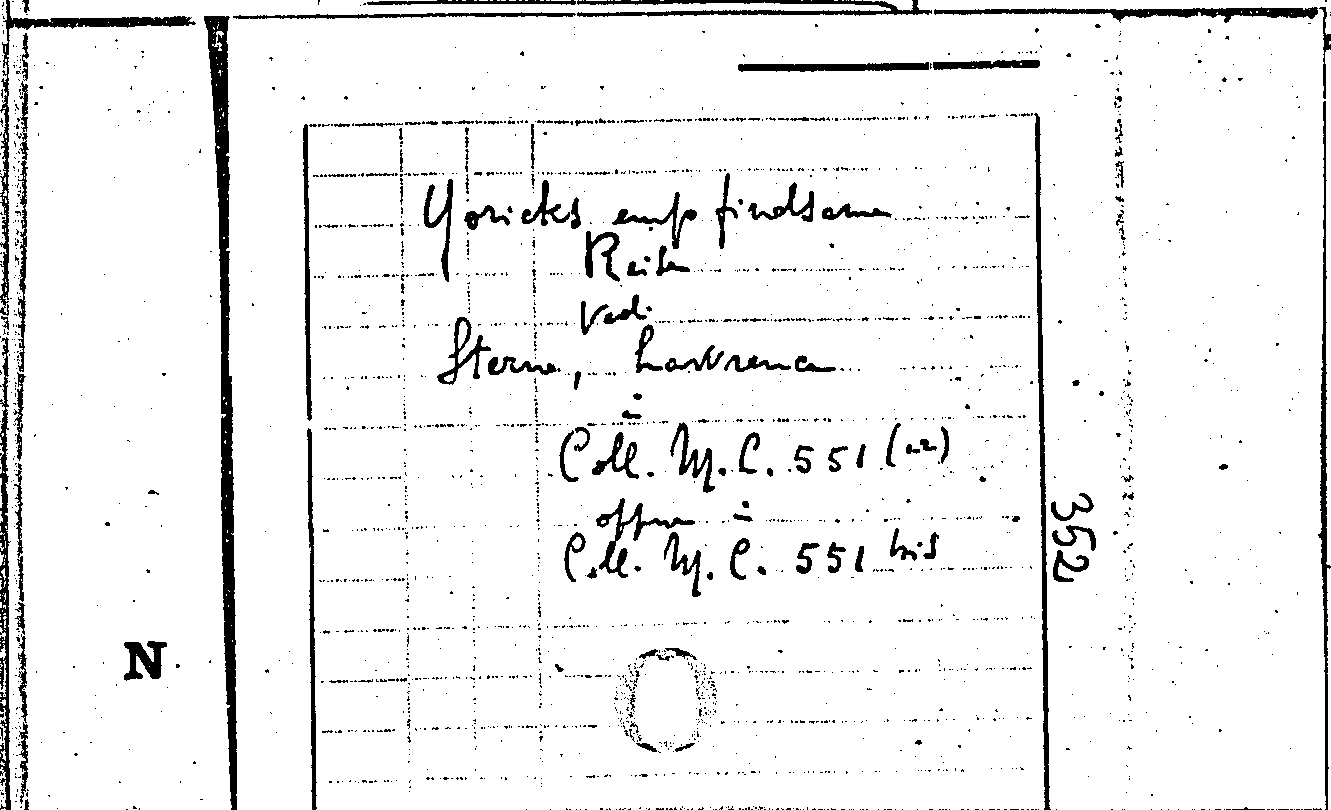 Yoricks empfindsame
Reise
Vedi
Sterne, Lawrence
in
Coll. M. C. 551 (22)
oppure in
Coll. M. C. 551 bis
352
N